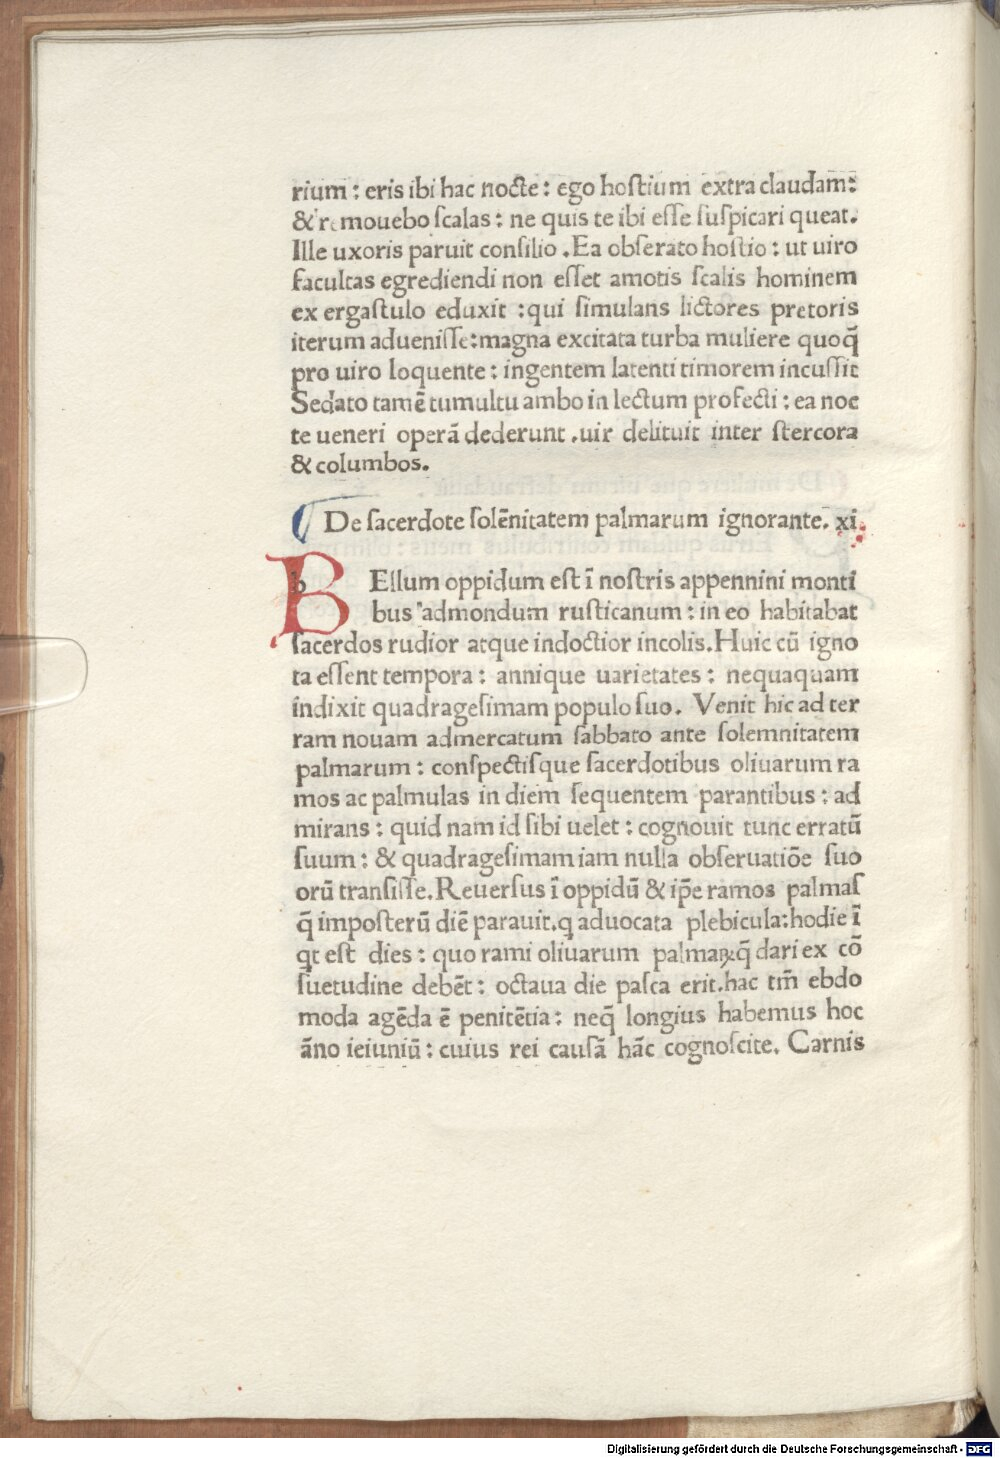 rium : eris ibi hac nocte : ego hoſtium extra claudam:
& remouebo ſcalas : ne quis te ibi eſſe ſuſpicari queat.
Ille uxoris paruit conſilio .Ea obſerato hoſtio : ut uiro
facultas egrediendi non eſſet amotis ſcalis hominem
ex ergaſtulo eduxit :qui ſimulans lictores pretoris
iterum adueniſſe:magna excitata turba muliere quoq̄
pro uiro loquente : ingentem latenti timorem incuſſit
Sedato tamē tumultu ambo in lectum profecti : ea noc
te ueneri operā dederunt .uir delituit inter ſtercora
& columbos.
De ſacerdote ſolēnitatem palmarum ignorante. xi.
BEllum oppidum eſt ī noſtris appennini monti
bus admondum ruſticanum : in eo habitabat
ſacerdos rudior atque indoctior incolis.Huic cū igno
ta eſſent tempora : annique uarietates : nequaquam
indixit quadrageſimam populo ſuo. Venit hic ad ter
ram nouam admercatum ſabbato ante ſolemnitatem
palmarum : conſpectiſque ſacerdotibus oliuarum ra
mos ac palmulas in diem ſequentem parantibus : ad
mirans : quid nam id ſibi uelet : cognouit tunc erratū
ſuum : & quadrageſimam iam nulla obſeruatiōe ſuo
orū tranſiſſe.Reuerſus ī oppidū & ip̄e ramos palmaſ
q̄ impoſterū diē parauit.q aduocata plebicula:hodie ī
qt eſt dies : quo rami oliuarum palmaꝝq̄ dari ex cō
ſuetudine debēt : octaua die paſca erit.hac tm̄ ebdo
moda agēda ē penitētia : neq̄ longius habemus hoc
āno ieiuniū : cuius rei cauſā hāc cognoſcite. Carnis
Digitalisierung gefördert durch die Deutsche Forschungsgemeinschaft - DFG